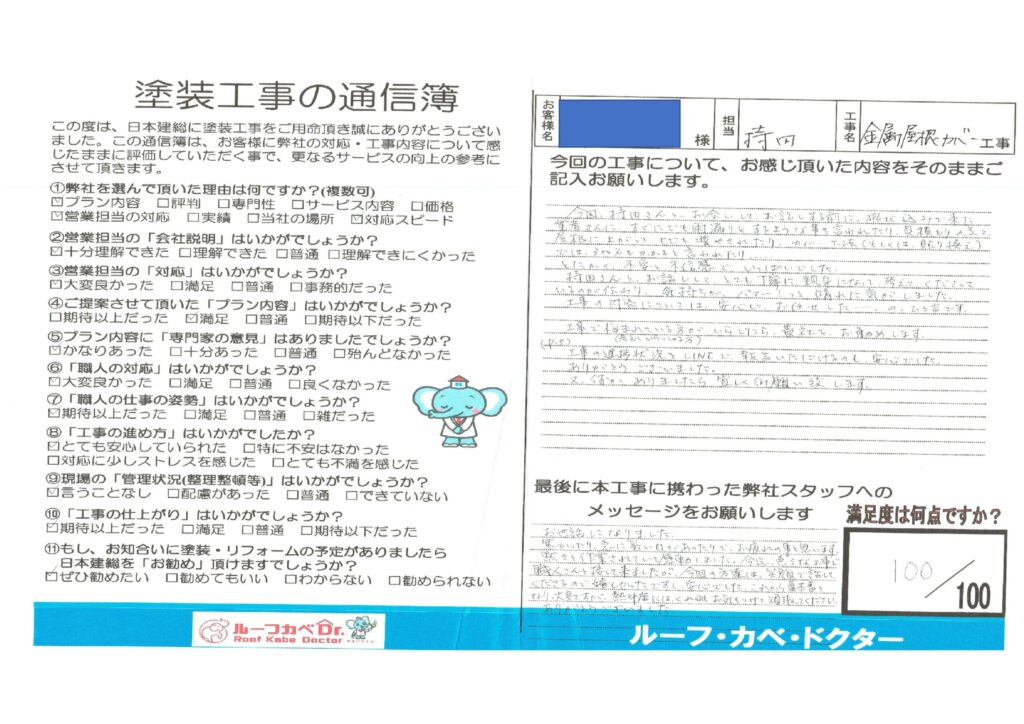 塗装工事の通信簿
この度は、日本建総に塗装工事をご用命頂き誠にありがとうござい
ました。この通信簿は、お客様に弊社の対応・工事内容について感
じたままに評価していただく事で、更なるサービスの向上の参考に
させて頂きます。
①弊社を選んで頂いた理由は何ですか?(複数可)
☑プラン内容 □評判 □専門性 □サービス内容 □価格
☑営業担当の対応 □実績 □当社の場所 ☑対応スピード
②営業担当の「会社説明」はいかがでしょうか?
☑十分理解できた □理解できた □普通 □理解できにくかった
③営業担当の「対応」はいかがでしょうか?
☑大変良かった □満足 □普通 □事務的だった
④ご提案させて頂いた「プラン内容」はいかがでしょうか?
□期待以上だった ☑満足 □普通 □期待以下だった
⑤プラン内容に「専門家の意見」はありましたでしょうか?
☑かなりあった □十分あった □普通 □殆んどなかった
⑥「職人の対応」はいかがでしょうか?
☑大変良かった □満足 □普通 □良くなかった
⑦「職人の仕事の姿勢」はいかがでしょうか?
☑期待以上だった □満足 □普通 □雑だった
⑧「工事の進め方」はいかがでしたか?
☑とても安心していられた □特に不安はなかった
□対応に少しストレスを感じた □とても不満を感じた
⑨現場の「管理状況(整理整頓等)」はいかがでしょうか?
☑言うことなし □配慮があった □普通 □できていない
⑩「工事の仕上がり」はいかがでしょうか?
☑期待以上だった □満足 □普通 □期待以下だった
⑪もし、お知合いに塗装・リフォームの予定がありましたら
日本建総を「お勧め」頂けますでしょうか?
☑ぜひ勧めたい □勧めてもいい □わからない □勧められない
ルーフカベDr.
Roof Kabe Doctor
お客様名 様 担当 持田 工事名 金属屋根カバー工事
今回の工事について、お感じ頂いた内容をそのままご
記入お願いします。
今回、持田さんと、お会いして、お話しする前に、飛び込みで来た
業者さんに、すぐにでも雨漏りとするような事を言われたり、見積もりの為と
屋根に上がって
と言われたり…
とにかく、不安、不信感で、いっぱいでした。
持田さんと、お話しし、とても丁寧に親身になって考えてくださって
いるのが伝わり、気持ちが、パーっと晴れた気がしました。
工事の内容については、安心して、お任せした…の、ひと言です。
工事で悩まれている方が、いらしたら、是非とも、お勧めします。
(P.S)
工事の進捗状況を、LINEで、報告いただけるのも、安心でした。
ありがとうございました。
又、何かありましたら、宜しく御願い致します。
最後に本工事に携わった弊社スタッフへの
メッセージをお願いします
お世話になりました。
ありがとうございました
満足度は何点ですか?
100/100
ルーフ・カベ・ドクター